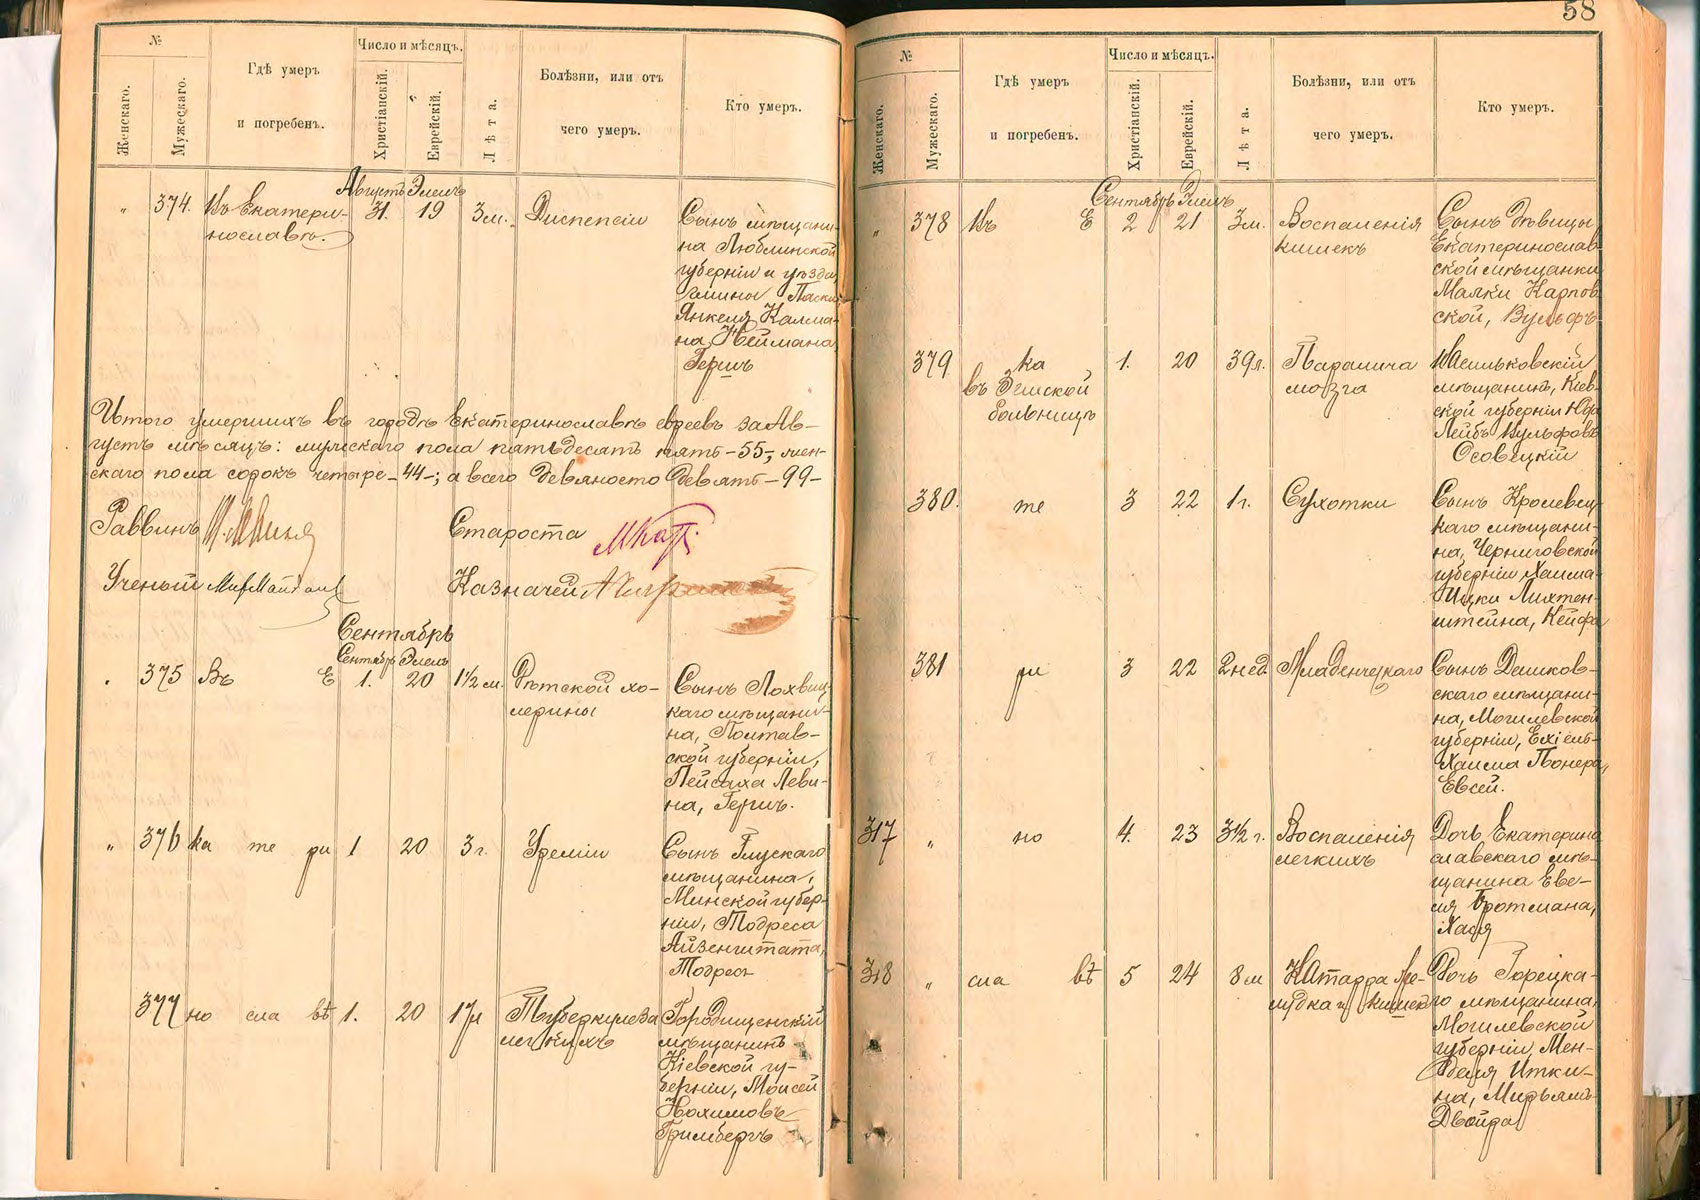 №
Женскаго.
Мужескаго.
Гдѣ умеръ
и погребенъ.
Число и мѣсяцъ.
Христіанскій.
Еврейскій.
Лѣта.
Болѣзни, или отъ
чего умеръ.
Кто умеръ.
Августъ Элелъ
" 374. Въ Екатери-
нославѣ.
31. 19 3м. Диспепсіи
Сынъ мѣщани-
на Люблинской
губерніи и уѣзда,
гмины Пяски
Янкеля Калма-
на Неймана,
Гершъ
Итого умершихъ въ городѣ Екатеринославѣ евреевъ за Ав-
густъ мѣсяцъ: мужскаго пола пятьдесятъ пять - 55-, жен-
скаго пола сорокъ четыре - 44-; а всего девяносто девять - 99-
Раввинъ
Староста
Ученый
Казначей
Сентябрь
Сентябрь Элелъ
375 Въ Е 1. 20 1½ м. Дѣтской хо-
лерины
Сынъ Лохвиц-
каго мѣщани-
на, Полтав-
ской губерніи,
Пейсаха Леви-
на, Гершъ.
" 376 ка те ри 1 20 3 г. Уреміи
Сынъ Глускаго
мѣщанина,
Минской губер-
ніи, Тодреса
Айзенштата,
Тодресъ
377 но сла вѣ 1. 20 17л Туберкулеза
легкихъ
Городищенскій
мѣщанинъ
Кіевской гу-
берніи, Моисей
Нохимовъ
Гримбергъ
58
№
Женскаго.
Мужескаго.
Гдѣ умеръ
и погребенъ.
Число и мѣсяцъ.
Христіанскій.
Еврейскій.
Лѣта.
Болѣзни, или отъ
чего умеръ.
Кто умеръ.
Сентябрь Элелъ
" 378 Въ Е 2 21 3м. Воспаленія
кишекъ
Сынъ дѣвицы,
Екатеринослав-
ской мѣщанки
Малки Карпов-
ской, Вульфъ
379 ка
въ Земской
больницѣ
1. 20 39л. Паралича
мозга
Васильковскій
мѣщанинъ, Кіев-
ской губерніи Юда
Лейбъ Вульфовъ
Осовецкій
380. те 3 22 1г. Сухотки
Сынъ Кролевец-
каго мѣщани-
на, Черниговской
губерніи Хаима-
Ицки Лихтен-
штейна, Кейфа
381 ри 3 22 2нед. Младенческаго
Сынъ Дашков-
скаго мѣщани-
на, Могилевской
губерніи, Ехіель-
Хаима Понера,
Евсей.
317 " но 4. 23 3½ г. Воспаленія
легкихъ
Дочь Екатерино
славскаго мѣ-
щанина Еве-
ля Бротмана,
Хася
318 " сла вѣ 5 24 8м Катарра же-
лудка и кишекъ
Дочь Горецка-
го мѣщанина,
Могилевской
губерніи, Мен-
деля Итки-
на, Мирьямъ
Двойра